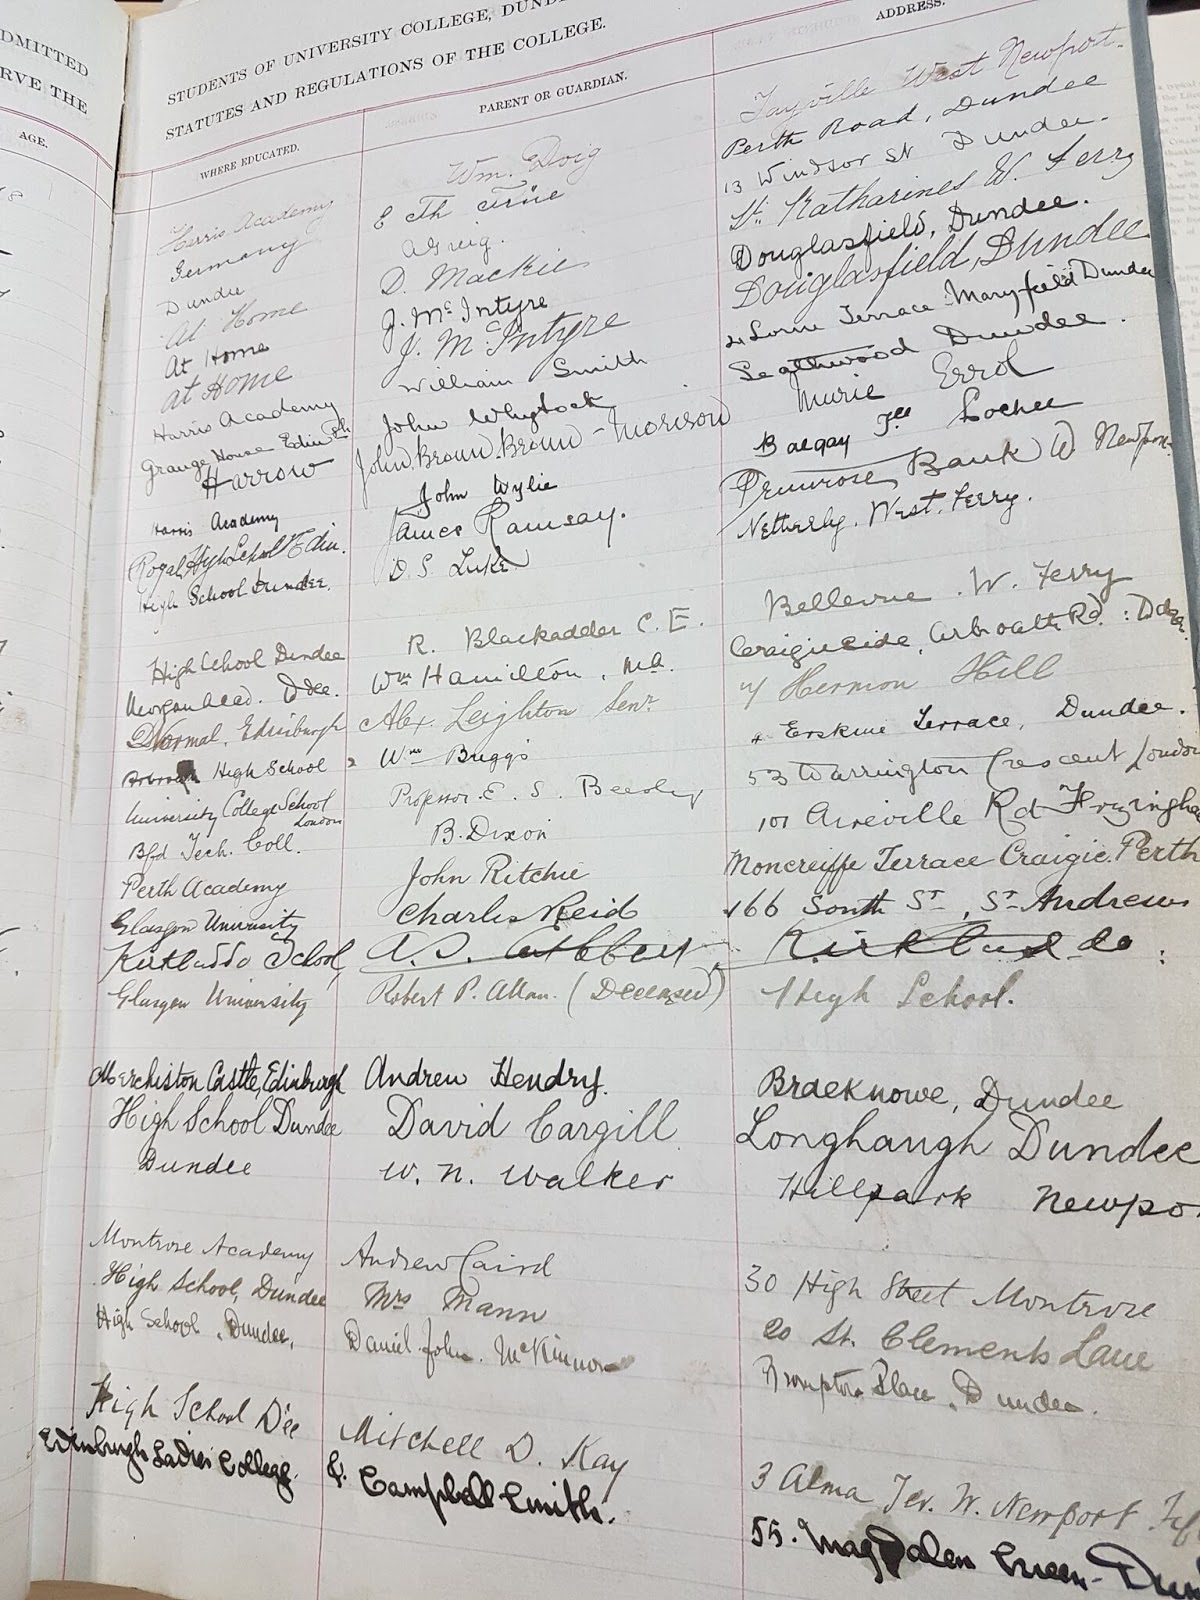 DMITTED
RVE THE
AGE.
STUDENTS OF UNIVERSITY COLLEGE, DUNDE
STATUTES AND REGULATIONS OF THE COLLEGE.
WHERE EDUCATED. PARENT OR GUARDIAN. ADDRESS.
Harris Academy Wm. Doig Tayville West Newport.
Germany Perth Road, Dundee
Dundee A Greig. 13 Windsor St Dundee.
At Home D. Mackie St. Katharines W. Ferry
At Home J. McIntyre Douglasfield, Dundee.
at Home J. McIntyre Douglasfield, Dundee
Harris Academy William Smith Lorne Terrace Maryfield Dundee
Grange House Edinbh John Whytock Dundee.
Harrow John Brown Brown-Morison Murie Errol
Harris Academy John Wylie Balgay Lochee
Royal High School Edin. James Ramsay. Primrose Bank W Newpor
High School Dundee. D. S. Luke Netherby. West. Ferry.
High School Dundee R. Blackadder C. E. Bellevue . W. Ferry
Morgan Acad. Ddee. Wm Hamilton, M.A. Craigieside, Arbroath Rd. :
Normal, Edinburgh Alex. Leighton Senr. 7 Hermon Hill
High School Wm Buggs 4 Erskine Terrace, Dundee.
University College School London Professor E. S. Beesly 53 Warrington Crescent London
Bfd Tech. Coll. B. Dixon 101 Aireville Rd Frizingha
Perth Academy John Ritchie Moncreiffe Terrace Craigie. Perth
Glasgow University Charles Reid 166 South St, St Andrews
School, A.
Glasgow University Robert P. Allan. (Deceased) High School.
Merchiston Castle, Edinburgh Andrew Hendry. Braeknowe, Dundee
High School Dundee David Cargill Longhaugh Dundee
Dundee W. N. Walker Hillpark Newpo
Montrose Academy Andrew Caird 30 High Street Montrose
High School, Dundee Mrs Mann 20 St. Clements Lane
High School, Dundee, Daniel John McKinnon Brompton Place, Dundee.
High School D'ee Mitchell D. Kay 3 Alma Ter. W. Newport Fif
Edinburgh Ladies' College. Campbell Smith. 55. Magdalen Green - Dun